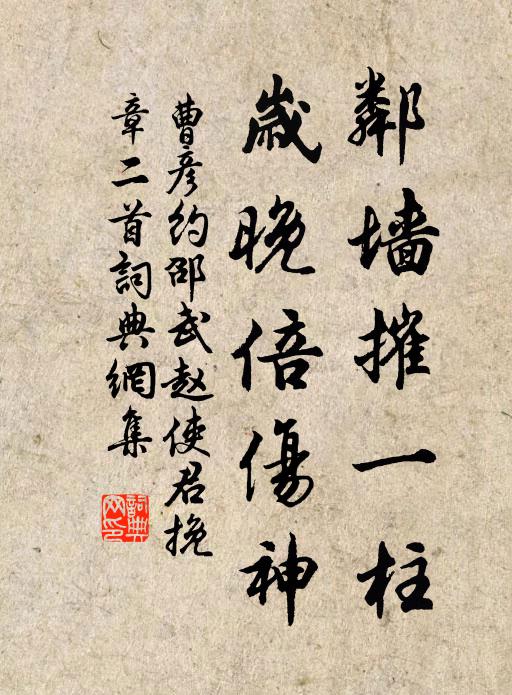 鄰墻摧一柱
歲晚倍傷神
曹彦約邵武赵使君挽
章二首詞典網集
詞典网印